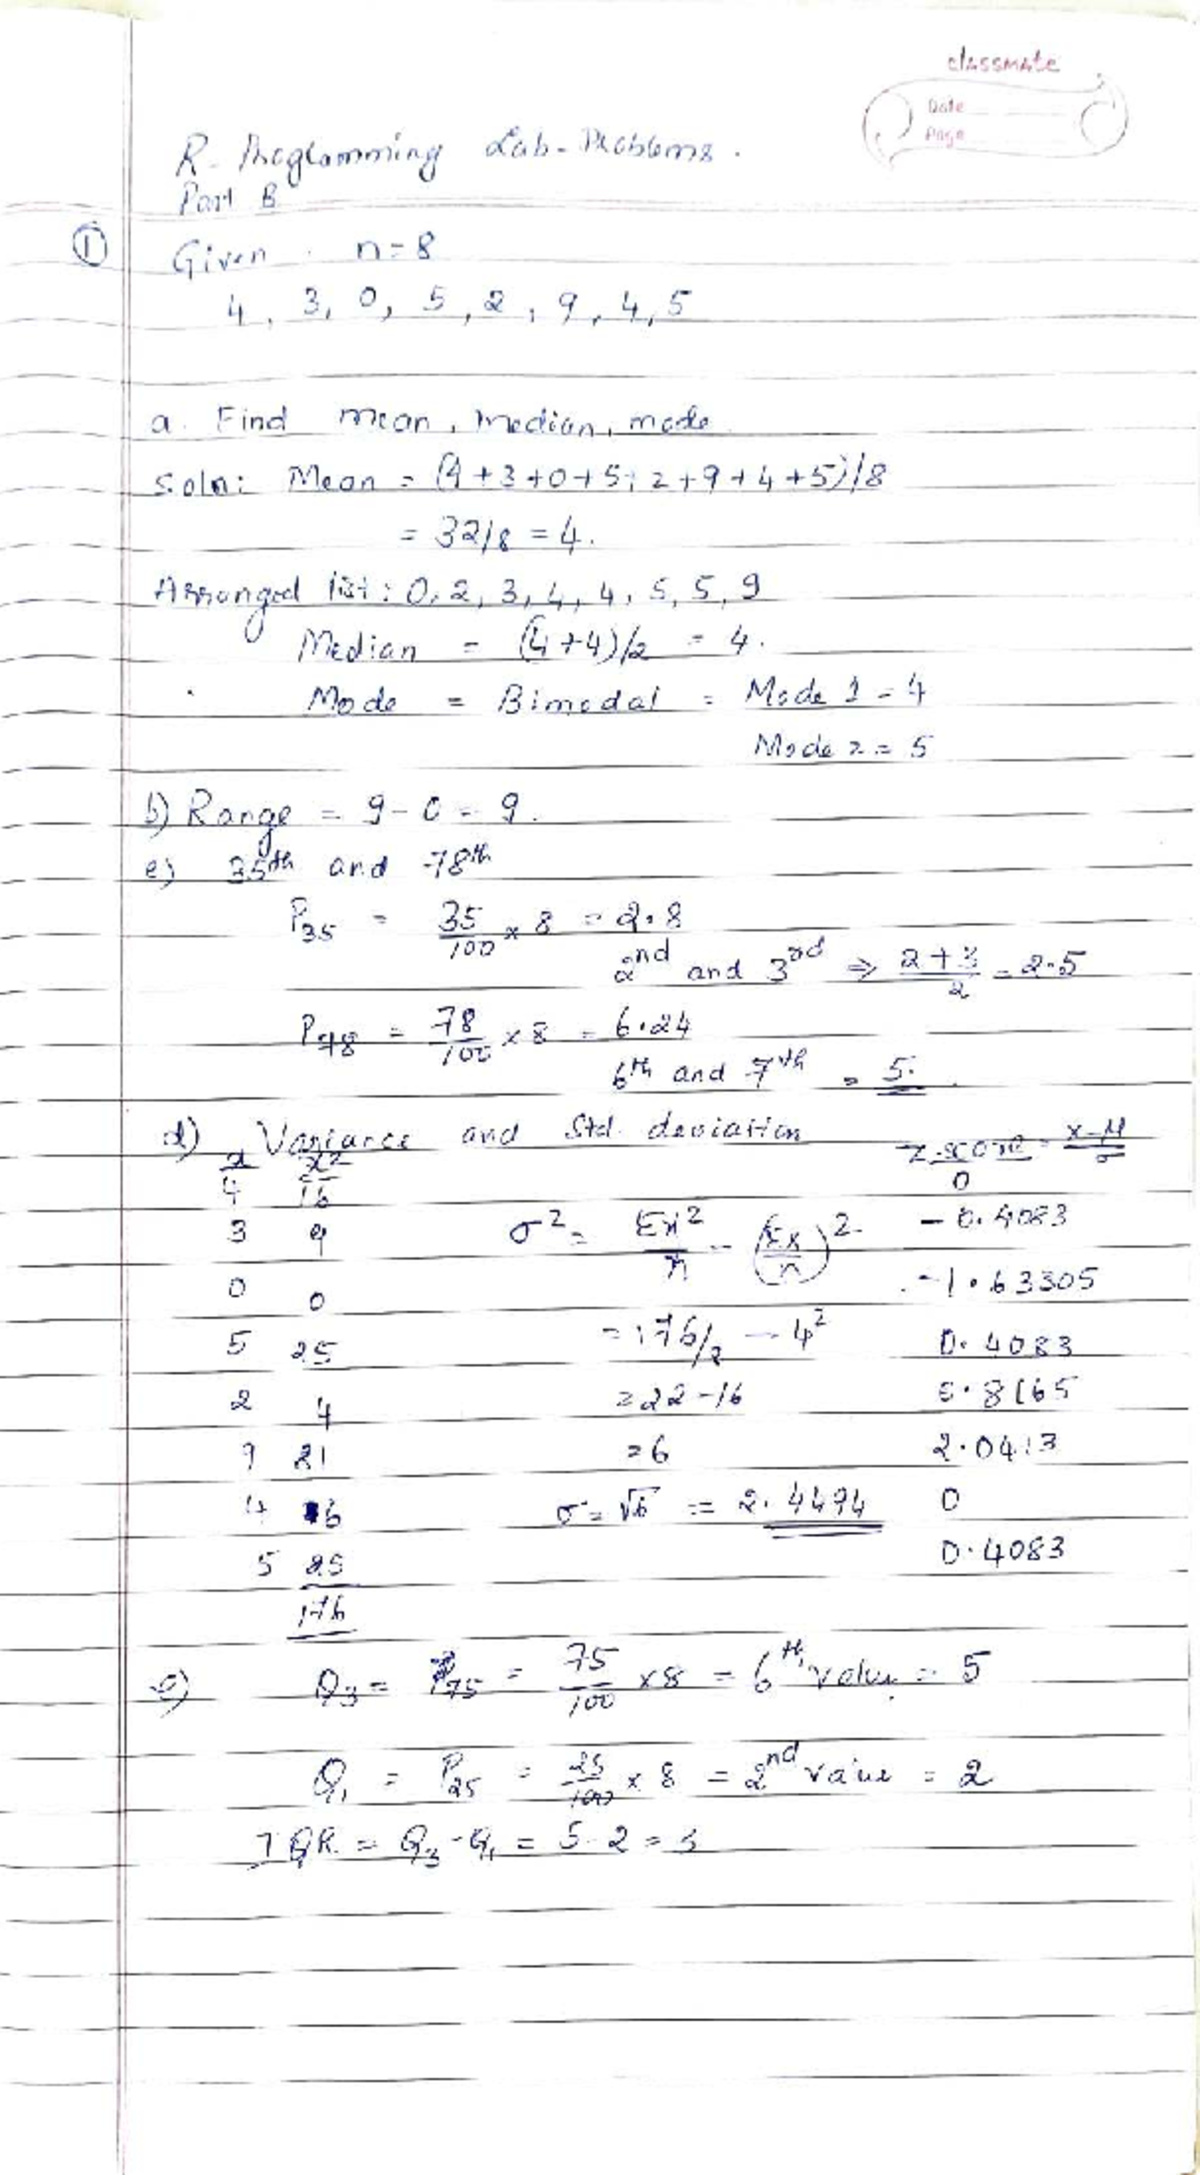 classmate
Date
Page
R-Programming Lab-Problems.
Part B
① Given n=8
4, 3, 0, 5, 2, 9, 4, 5
a. Find mean, Median, mode
Soln: Mean = (4+3+0+5+2+9+4+5)/8
= 32/8 = 4.
Arranged list: 0, 2, 3, 4, 4, 5, 5, 9
Median = (4+4)/2 = 4.
Mode = Bimodal = Mode 1 = 4
Mode 2 = 5
b) Range = 9-0 = 9.
e) 35th and 78th
P35 = 35/100 × 8 = 2.8
2nd and 3rd ⇒ (2+3)/2 = 2.5
P78 = 78/100 × 8 = 6.24
6th and 7th = 5.
d) Variance and Std. deviation
z-score = (x-μ)/σ
x x²
4 16 0
3 9 σ² = Σxi²/n - (Σx/n)² -0.4083
0 0 -1.63305
5 25 = 176/8 - 4² 0.4083
2 4 = 22-16 0.8165
9 81 = 6 2.0413
4 16 σ = √6 = 2.4494 0
5 25 0.4083
176
c) Q3 = P75 = 75/100 × 8 = 6th value = 5
Q1 = P25 = 25/100 × 8 = 2nd value = 2
IQR = Q3-Q1 = 5-2 = 3